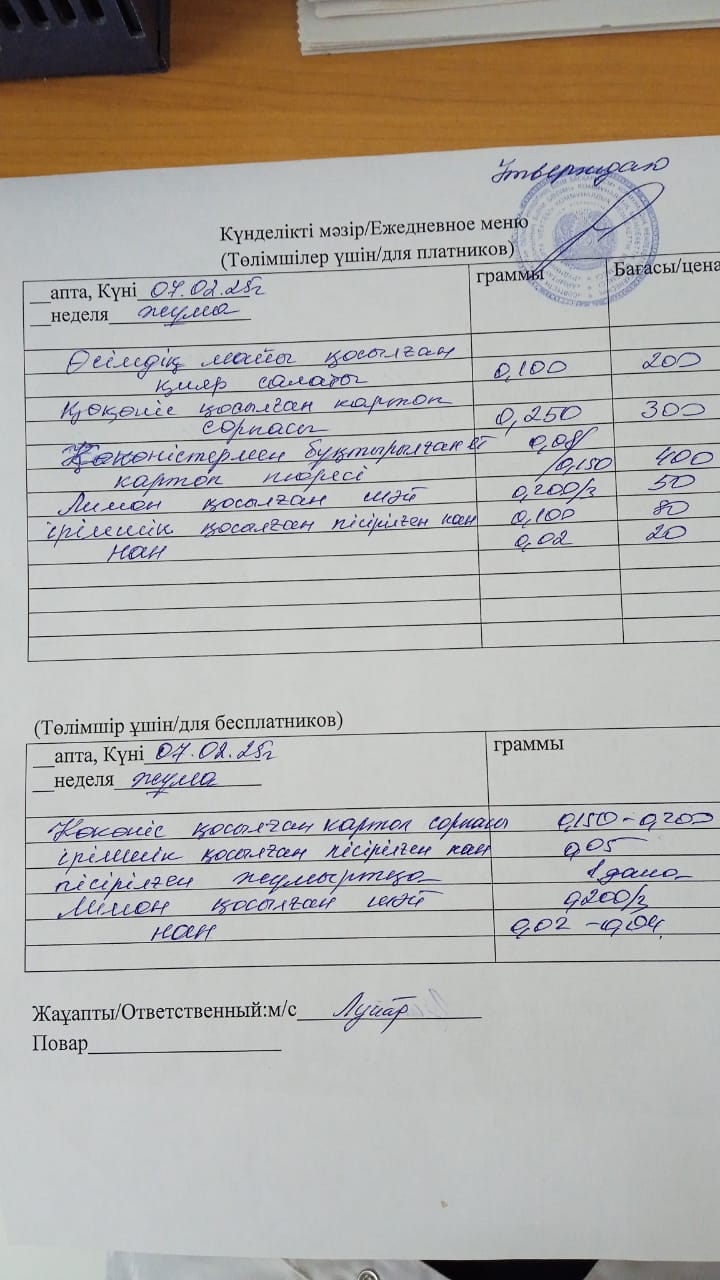 Утверждаю
Күнделікті мәзір/Ежедневное меню
(Төлімшілер үшін/для платников)
__апта, Күні 07.02.25г граммы Бағасы/цена
__неделя жума
Өсімдік майы қосылған
қияр салаты 0,100 200
Көкөніс қосылған картоп
сорпасы 0,250 300
Көкөністермен бұқтырылған ет 0,08/
картоп пюресі /0,150 400
Лимон қосылған шәй 0,200/3 50
ірімшік қосалған пісірілген нан 0,100 80
нан 0,02 20
(Төлімшір ұшін/для бесплатников)
__апта, Күні 07.02.25г граммы
__неделя жума
Көкөніс қосылған картоп сорпасы 0,150-0,200
ірімшік қосылған пісірілген нан 0,05
пісірілген жұмыртқа 1 дана
Лимон қосылған шәй 0,200/3
нан 0,02-0,04
Жаұапты/Ответственный:м/с
Повар